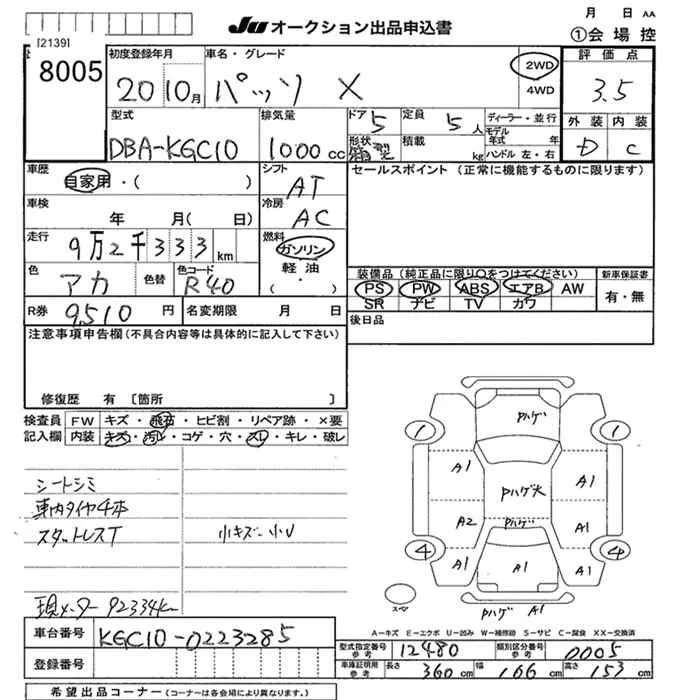 JU オークション出品申込書
月 日 AA
①会場控
[2139]
8005
初度登録年月
20 10月
車名・グレード
パッソ X
2WD
4WD
評価点
3.5
型式
DBA-KGC10
排気量
1000 cc
ドア 5
形状
定員 5 人
積載 kg
ディーラー・並行
モデル年式 年
ハンドル 左・右
外装 内装
D C
車歴
自家用・( )
シフト
AT
セールスポイント (正常に機能するものに限ります)
車検
年 月( 日)
冷房
AC
走行
9万2千333 km
燃料
ガソリン
軽油
( ・ )
色
アカ
色替
色コード
R40
装備品 (純正品に限り○をつけてください)
PS PW ABS エアB AW
SR ナビ TV カワ
新車保証書
有・無
R券 9,510 円
名変期限 月 日
後日品
注意事項申告欄 (不具合内容等は具体的に記入して下さい)
修復歴 有 [箇所 ]
検査員記入欄
FW キズ・飛石・ヒビ割・リペア跡・×要
内装 キズ・汚レ・コゲ・穴・スレ・キレ・破レ
シートシミ
車内タイヤ4本
スタットレスT
小キズ小U
現メーター 92334km
Pハゲ
1 1
A1 A1
Pハゲ大
A2 Pハゲ A1
4 4
A1 A1 A1
スペア
Pハゲ A1
A-キズ E-エクボ U-凹み W-補修跡 S-サビ C-腐食 XX-交換済
車台番号 KGC10-0223285
登録番号
型式指定番号 参考 12480
類別区分番号 参考 0005
車庫証明用 参考 長さ 360 cm 幅 166 cm 高さ 153 cm
希望出品コーナー (コーナーは各会場により異なります。)